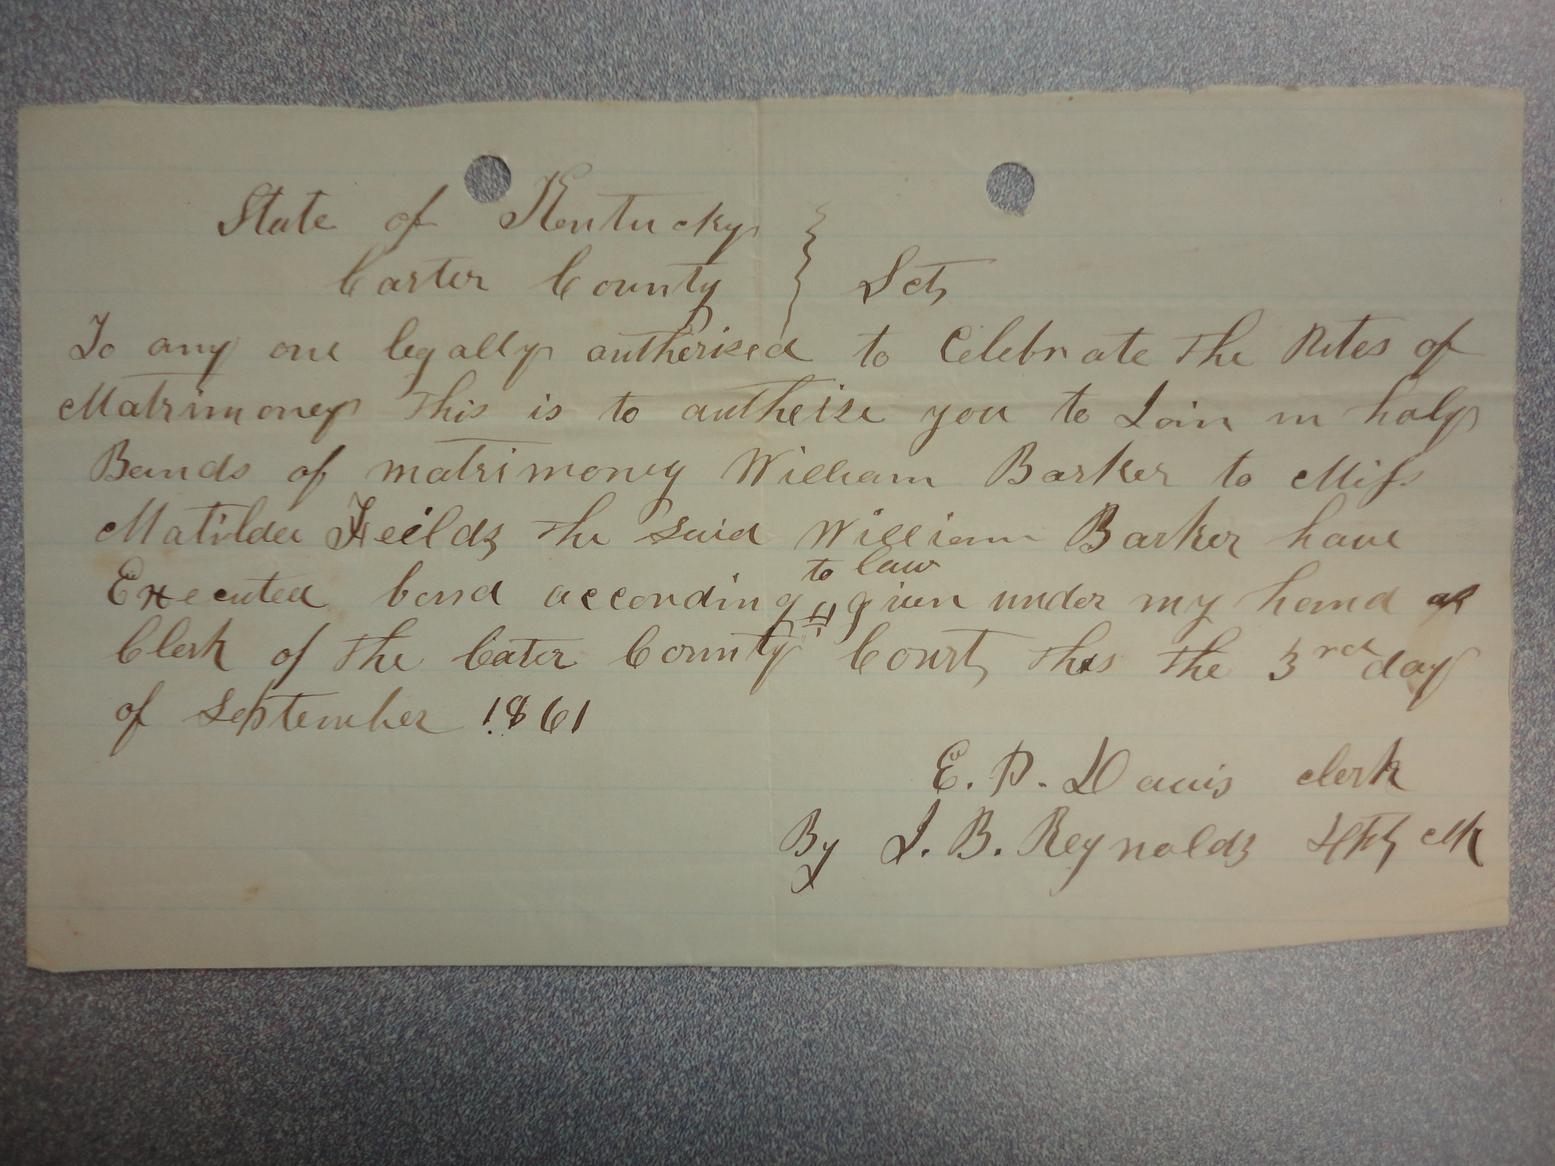 State of Kentucky
Carter County } Sct
To any one legally authorised to Celebrate the Rites of
Matrimoney This is to autherise you to Join in holy
Bands of matrimoney William Barker to Miss
Matilda Feilds the said William Barker have
Executed bond according to law given under my hand as
Clerk of the Cater County Court this the 3rd day
of September 1861
E. D. Davis clerk
By J. B. Reynolds